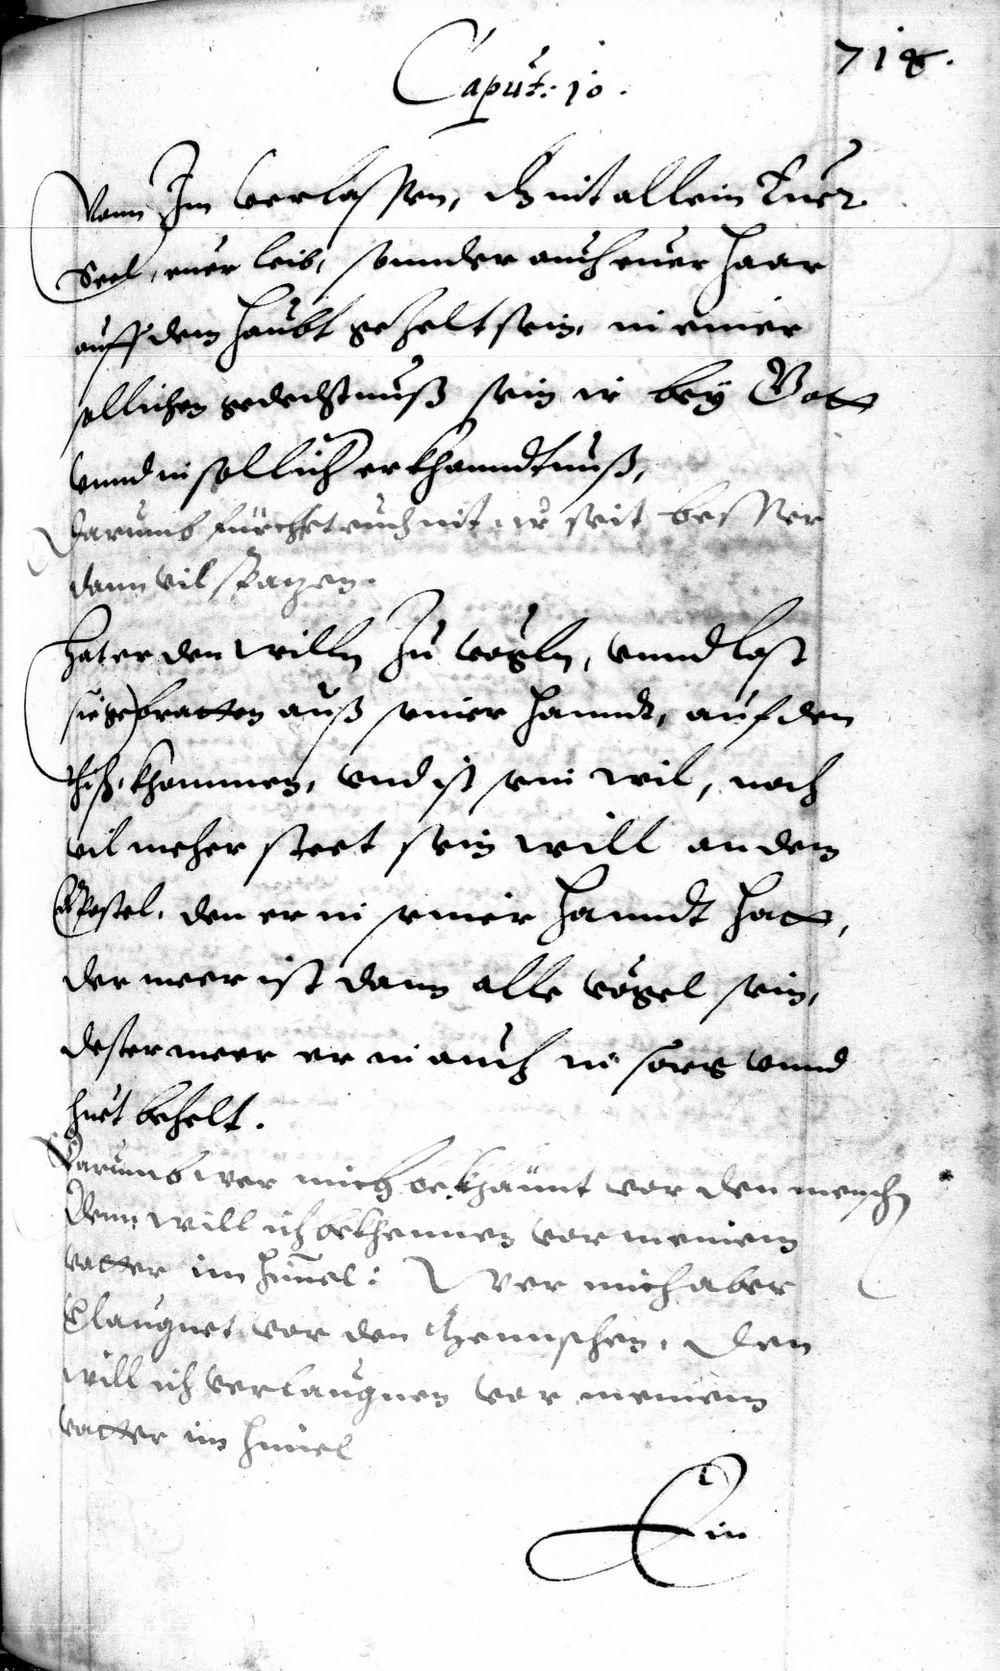 Caput: 10.
718.
Vonn Im verlassen, dz nit allein Euer
Seel, euer leib, sonnder auch euer haar
auff dem haubt gezelt sein, in einer
sollichen gedechtnuß sein ir bey Gott
vnnd in sollicher erkhanndtnuß,
Darumb fürchtet euch nit, ir seit besser
dann vil spatzen.
Hat er den willn zu vögln, vnnd last
sie gebratten auß seiner hanndt, auf den
thisch khommen, vnd ist sein wil, noch
vil meher steet sein will an dem
Apostel, den er in seiner hanndt hatt,
der meer ist dann alle vögel sein,
dester meer er in auch in sorg vnnd
huet behelt.
Darumb wer mich bekhannt vor den mensch
Denn will ich bekhennen vor meinem
vatter im himel: Wer mich aber
verlaugnet vor den menschen, den
will ich verlaugnen vor meinem
vatter im himel
Ein